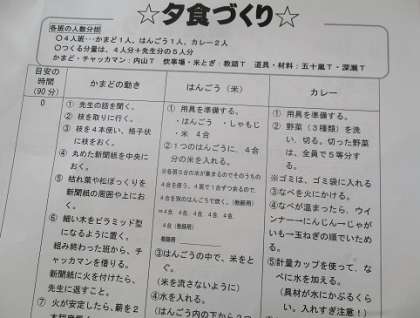 ☆夕食づくり☆
各班の人数分担
○4人班…かまど1人、はんごう1人、カレー2人
○つくる分量は、4人分+先生分の5人分
かまど・チャッカマン:内山T 炊事場・米とぎ:教諭T 道具・材料:五十嵐T・深瀬T
目安の
時間
(90分)
かまどの動き
はんごう(米)
カレー
0
① 先生の話を聞く。
② 枝を取りに行く。
③ 枝を4本使い、格子状
に枝をおく。
④ 丸めた新聞紙を中央に
おく。
⑤ 枯れ葉や松ぼっくりを
新聞紙の周囲や上にお
く。
⑥ 細い木をピラミッド型
になるように置く。
組み終わった班から、チ
ャッカマンを借りる。
新聞紙に火を付けたら、
先生に返すこと。
⑦ 火が安定したら、薪を2
① 用具を準備する。
・はんごう ・しゃもじ
・米 4合
② 1つのはんごうに、4合
分の米を入れる。
③はんごうの中で、米をと
ぐ。
(米を流さないように)
④水を入れる。
① 用具を準備する。
② 野菜(3種類)を洗
い、切る。切った野菜
は、全員で5等分す
る。
※ゴミは、ゴミ袋に入れる
③なべを火にかける。
④なべが温まったら、ウイ
ンナー→にんじん→じゃが
いも→玉ねぎの順でいため
る。
⑤計量カップを使って、な
べに水を加える。
(具材が水にかぶるくら
い。入れすぎ注意!)